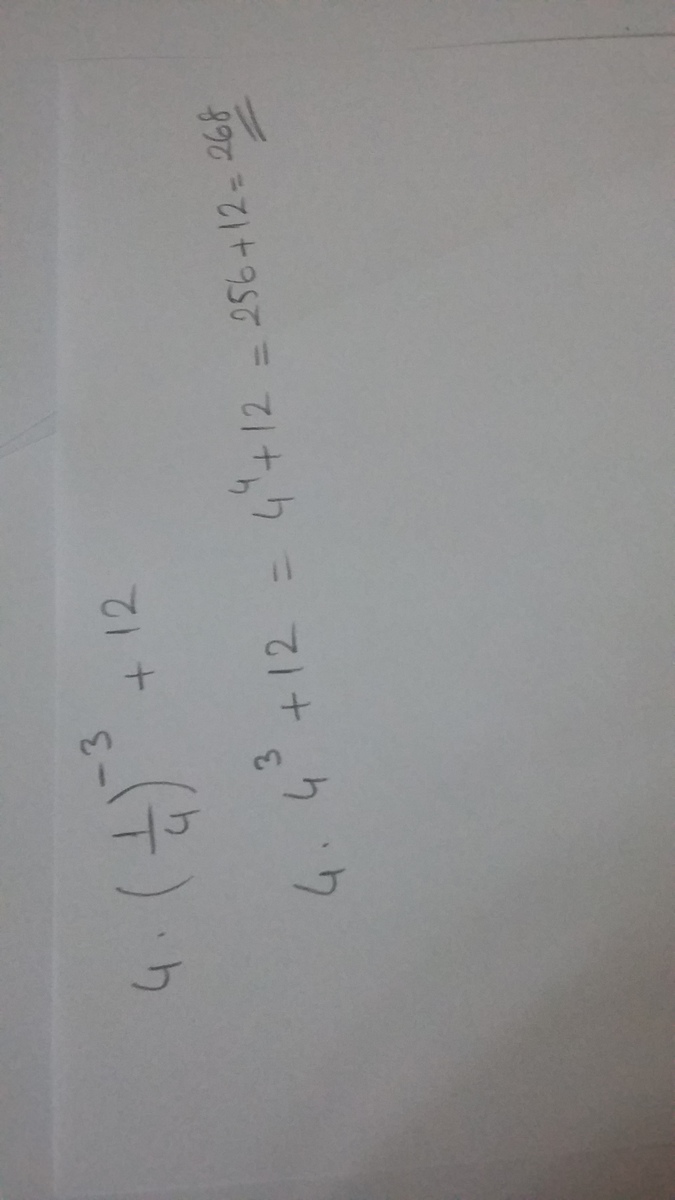 4 · (1/4)⁻³ + 12
4 · 4³ + 12 = 4⁴ + 12 = 256 + 12 = 268